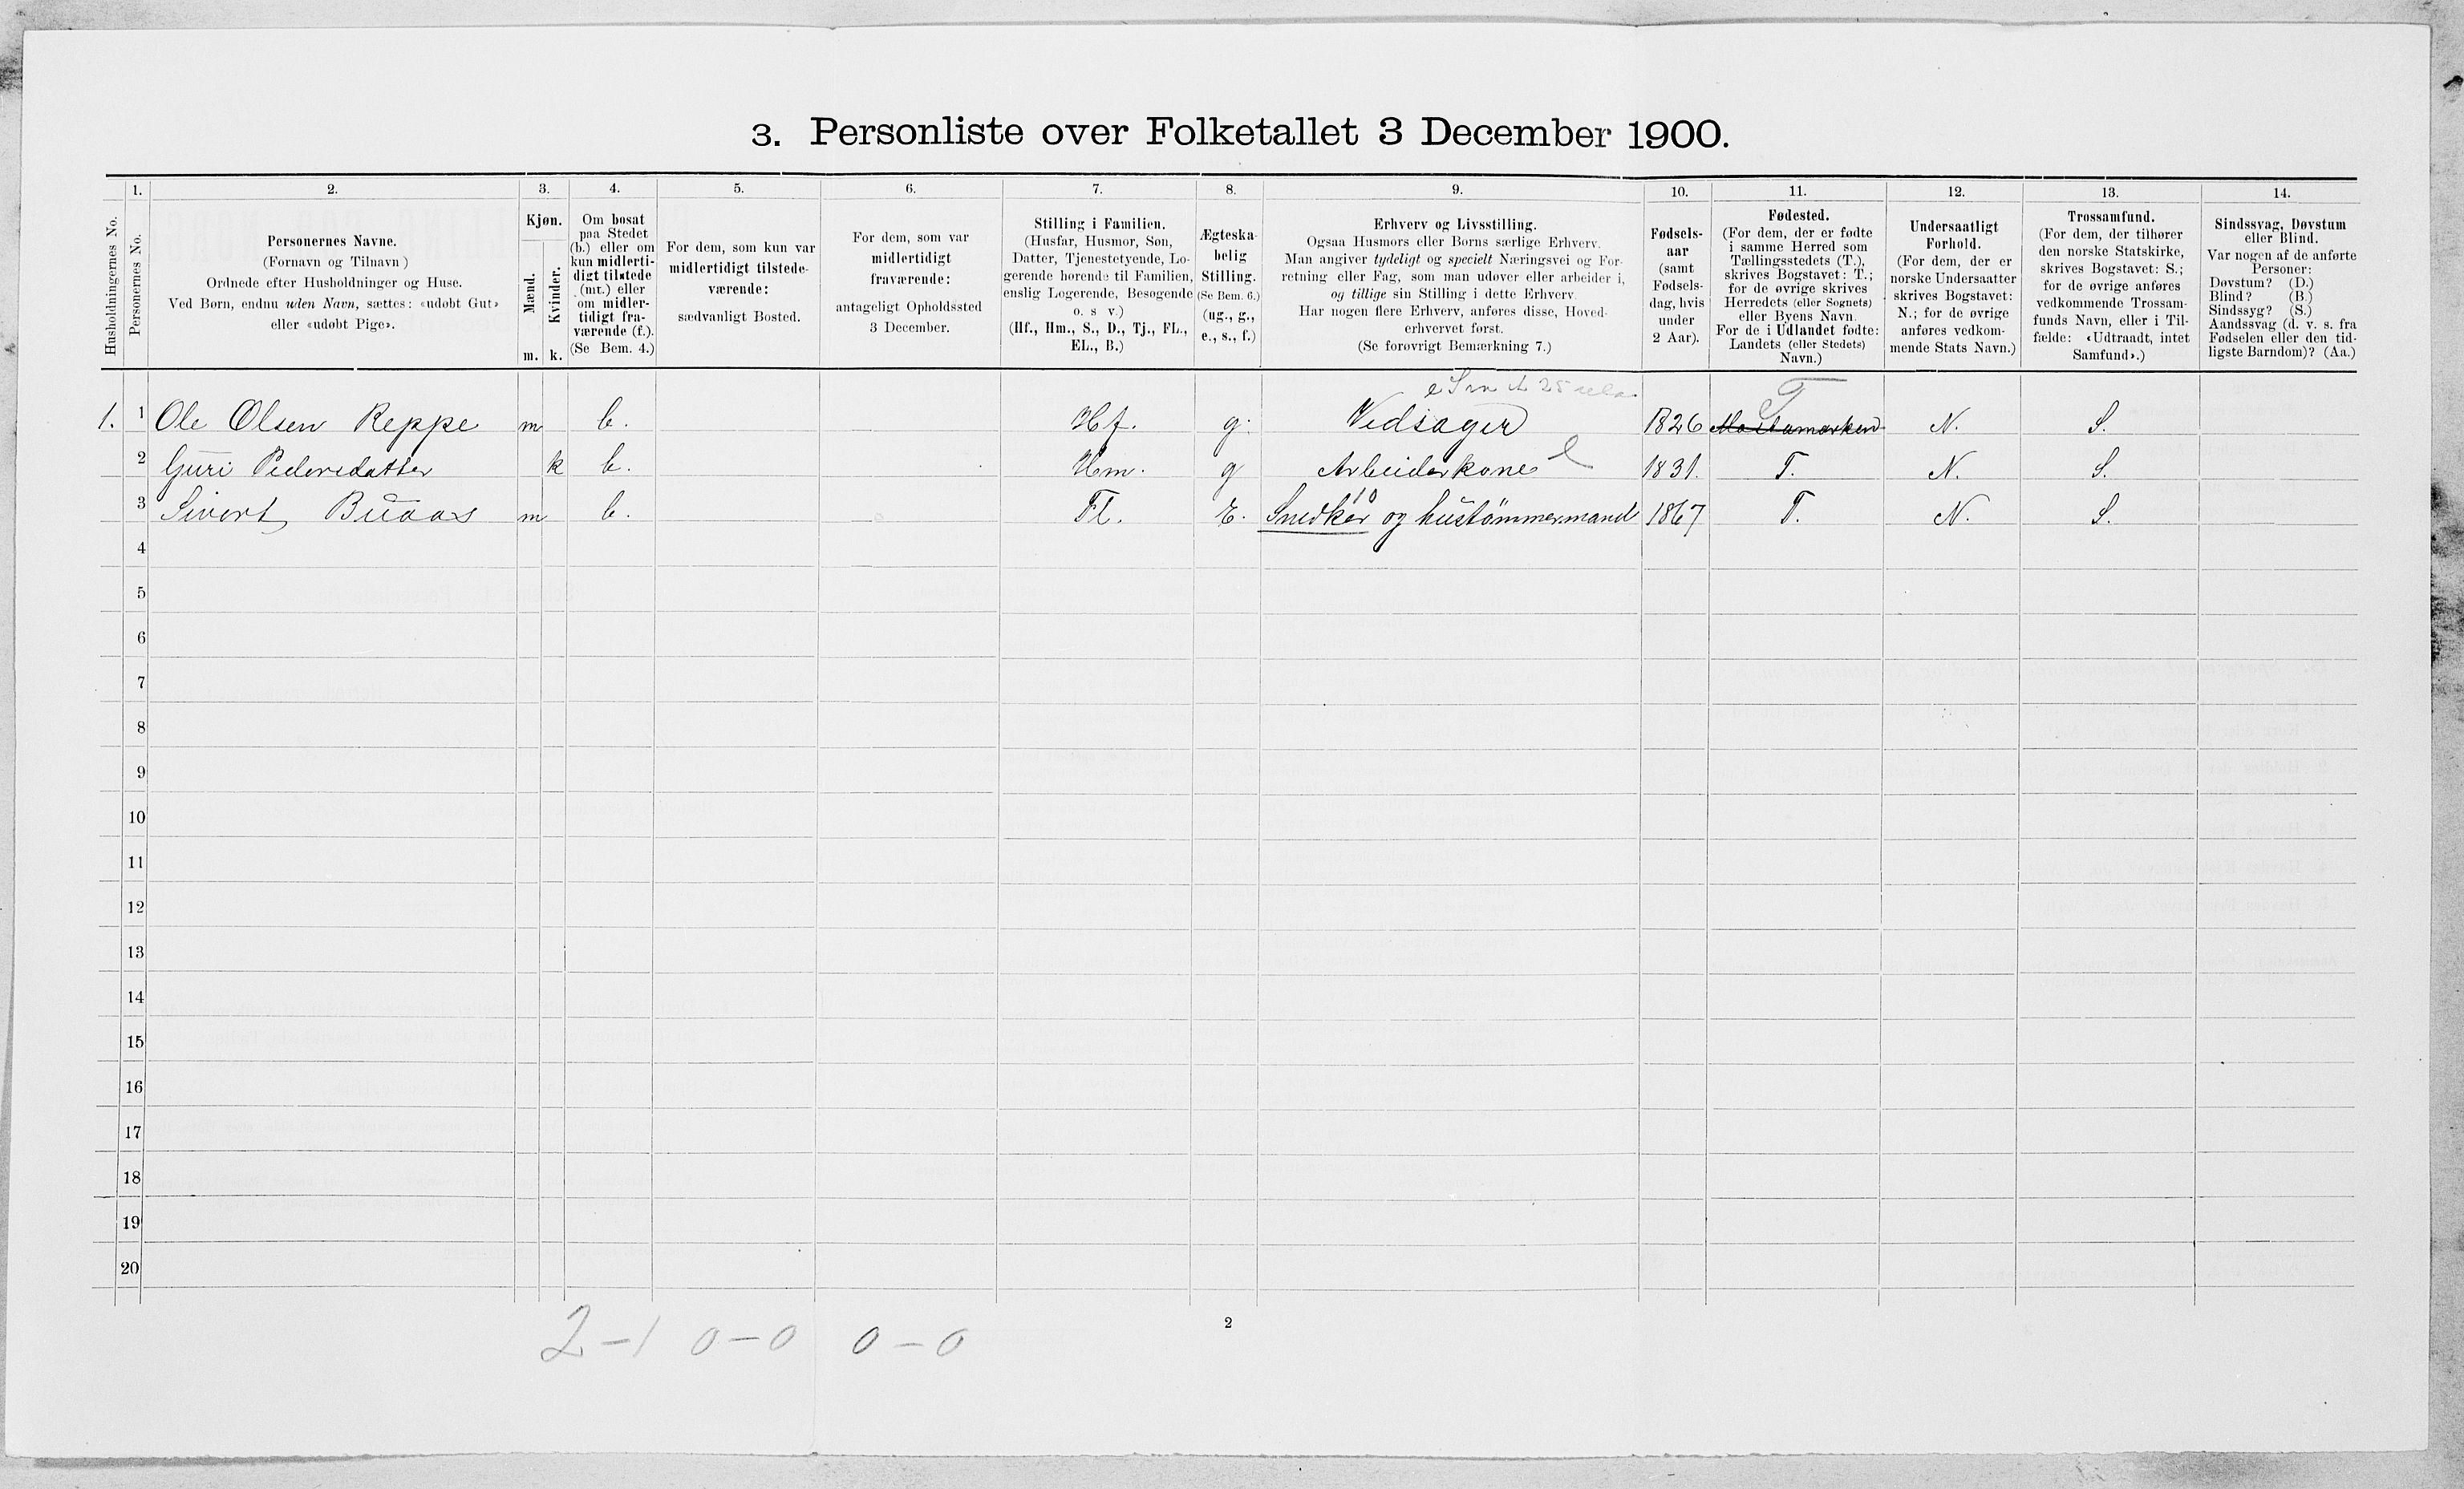 3. Personliste over Folketallet 3 December 1900.
Husholdningernes No.
1.
Personernes No.
2.
Personernes Navne.
(Fornavn og Tilnavn)
Ordnede efter Husholdninger og Huse.
Ved Børn, endnu uden Navn, sættes: «udøbt Gut»
eller «udøbt Pige».
3.
Kjøn.
Mænd.
Kvinder.
m. k.
4.
Om bosat
paa Stedet
(b.) eller om
kun midlerti-
digt tilstede
(mt.) eller
om midler-
tidigt fra-
værende (f.).
(Se Bem. 4.)
5.
For dem, som kun var
midlertidigt tilstede-
værende:
sædvanligt Bosted.
6.
For dem, som var
midlertidigt
fraværende:
antageligt Opholdssted
3 December.
7.
Stilling i Familien.
(Husfar, Husmor, Søn,
Datter, Tjenestetyende, Lo-
gerende hørende til Familien,
enslig Logerende, Besøgende
o. s v.)
(Hf., Hm., S., D., Tj., FL.,
EL., B.)
8.
Ægteska-
belig
Stilling.
(Se Bem. 6.)
(ug., g.,
e., s., f.)
9.
Erhverv og Livsstilling.
Ogsaa Husmors eller Børns særlige Erhverv.
Man angiver tydeligt og specielt Næringsvei og For-
retning eller Fag, som man udøver eller arbeider i,
og tillige sin Stilling i dette Erhverv.
Har nogen flere Erhverv, anføres disse, Hoved-
erhvervet først.
(Se forøvrigt Bemærkning 7.)
10.
Fødsels-
aar
(samt
Fødsels-
dag, hvis
under
2 Aar).
11.
Fødested.
(For dem, der er fødte
i samme Herred som
Tællingsstedets (T.),
skrives Bogstavet: T.;
for de øvrige skrives
Herredets (eller Sognets)
eller Byens Navn.
For de i Udlandet fødte:
Landets (eller Stedets)
Navn.)
12.
Undersaatligt
Forhold.
(For dem, der er
norske Undersaatter
skrives Bogstavet:
N.; for de øvrige
anføres vedkom-
mende Stats Navn.)
13.
Trossamfund.
(For dem, der tilhører
den norske Statskirke,
skrives Bogstavet: S.;
for de øvrige anføres
vedkommende Trossam-
funds Navn, eller i Til-
fælde: «Udtraadt, intet
Samfund».)
14.
Sindssvag, Døvstum
eller Blind.
Var nogen af de anførte
Personer:
Døvstum? (D.)
Blind? (B.)
Sindssyg? (S.)
Aandssvag (d. v. s. fra
Fødselen eller den tid-
ligste Barndom)? (Aa.)
1. 1 Ole Olsen Reppe m b. Hf. g. Vedsager 1826 T N. S.
2 Guri Pedersdatter k b. Hm. g Arbeiderkone 1831. T. N. S.
3 Sivert Buaas m b. Fl. E. Snedker og hustømmermand 1867 T. N. S.
10
4
5
6
7
8
9
10
11
12
13
14
15
16
17
18
19
20
2-1 0-0 0-0
2